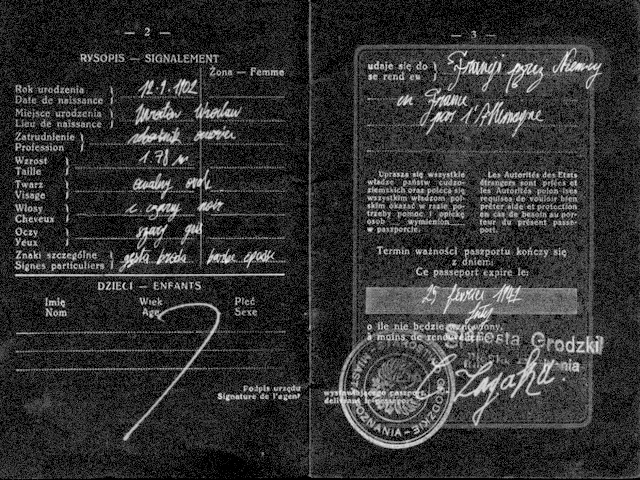 — 2 —
RYSOPIS — SIGNALEMENT
Żona — Femme
Rok urodzenia
Date de naissance
Miejsce urodzenia
Lieu de naissance
Wrocław
Zatrudnienie
Profession
Wzrost
Taille
1.78 m
Twarz
Visage
owalny
Włosy
Cheveux
c. czarny noir
Oczy
Yeux
szary gris
Znaki szczególne
Signes particuliers
gęsta broda barbe épaisse
DZIECI — ENFANTS
Imię Wiek Płeć
Nom Age Sexe
Podpis urzędu
Signature de l'agent
— 3 —
udaje się do
se rend eu
Francji przez Niemcy
en France
par l'Allemagne
Uprasza się wszystkie
władze państw cudzo-
ziemskich oraz poleca się
wszystkim władzom pol-
skim okazać w razie po-
trzeby pomoc i opiekę
osób wymienion
w paszporcie.
Les Autorités des Etats
étrangers sont priées et
les Autorités polonaises
requises de vouloir bien
prêter aide et protection
en cas de besoin au por-
teur du présent passe-
port.
Termin ważności paszportu kończy się
z dniem:
Ce passeport expire le:
25
luty
o ile nie będzie
a moins de
Starosta Grodzki
wystawiającego paszport
délivrant le passep.